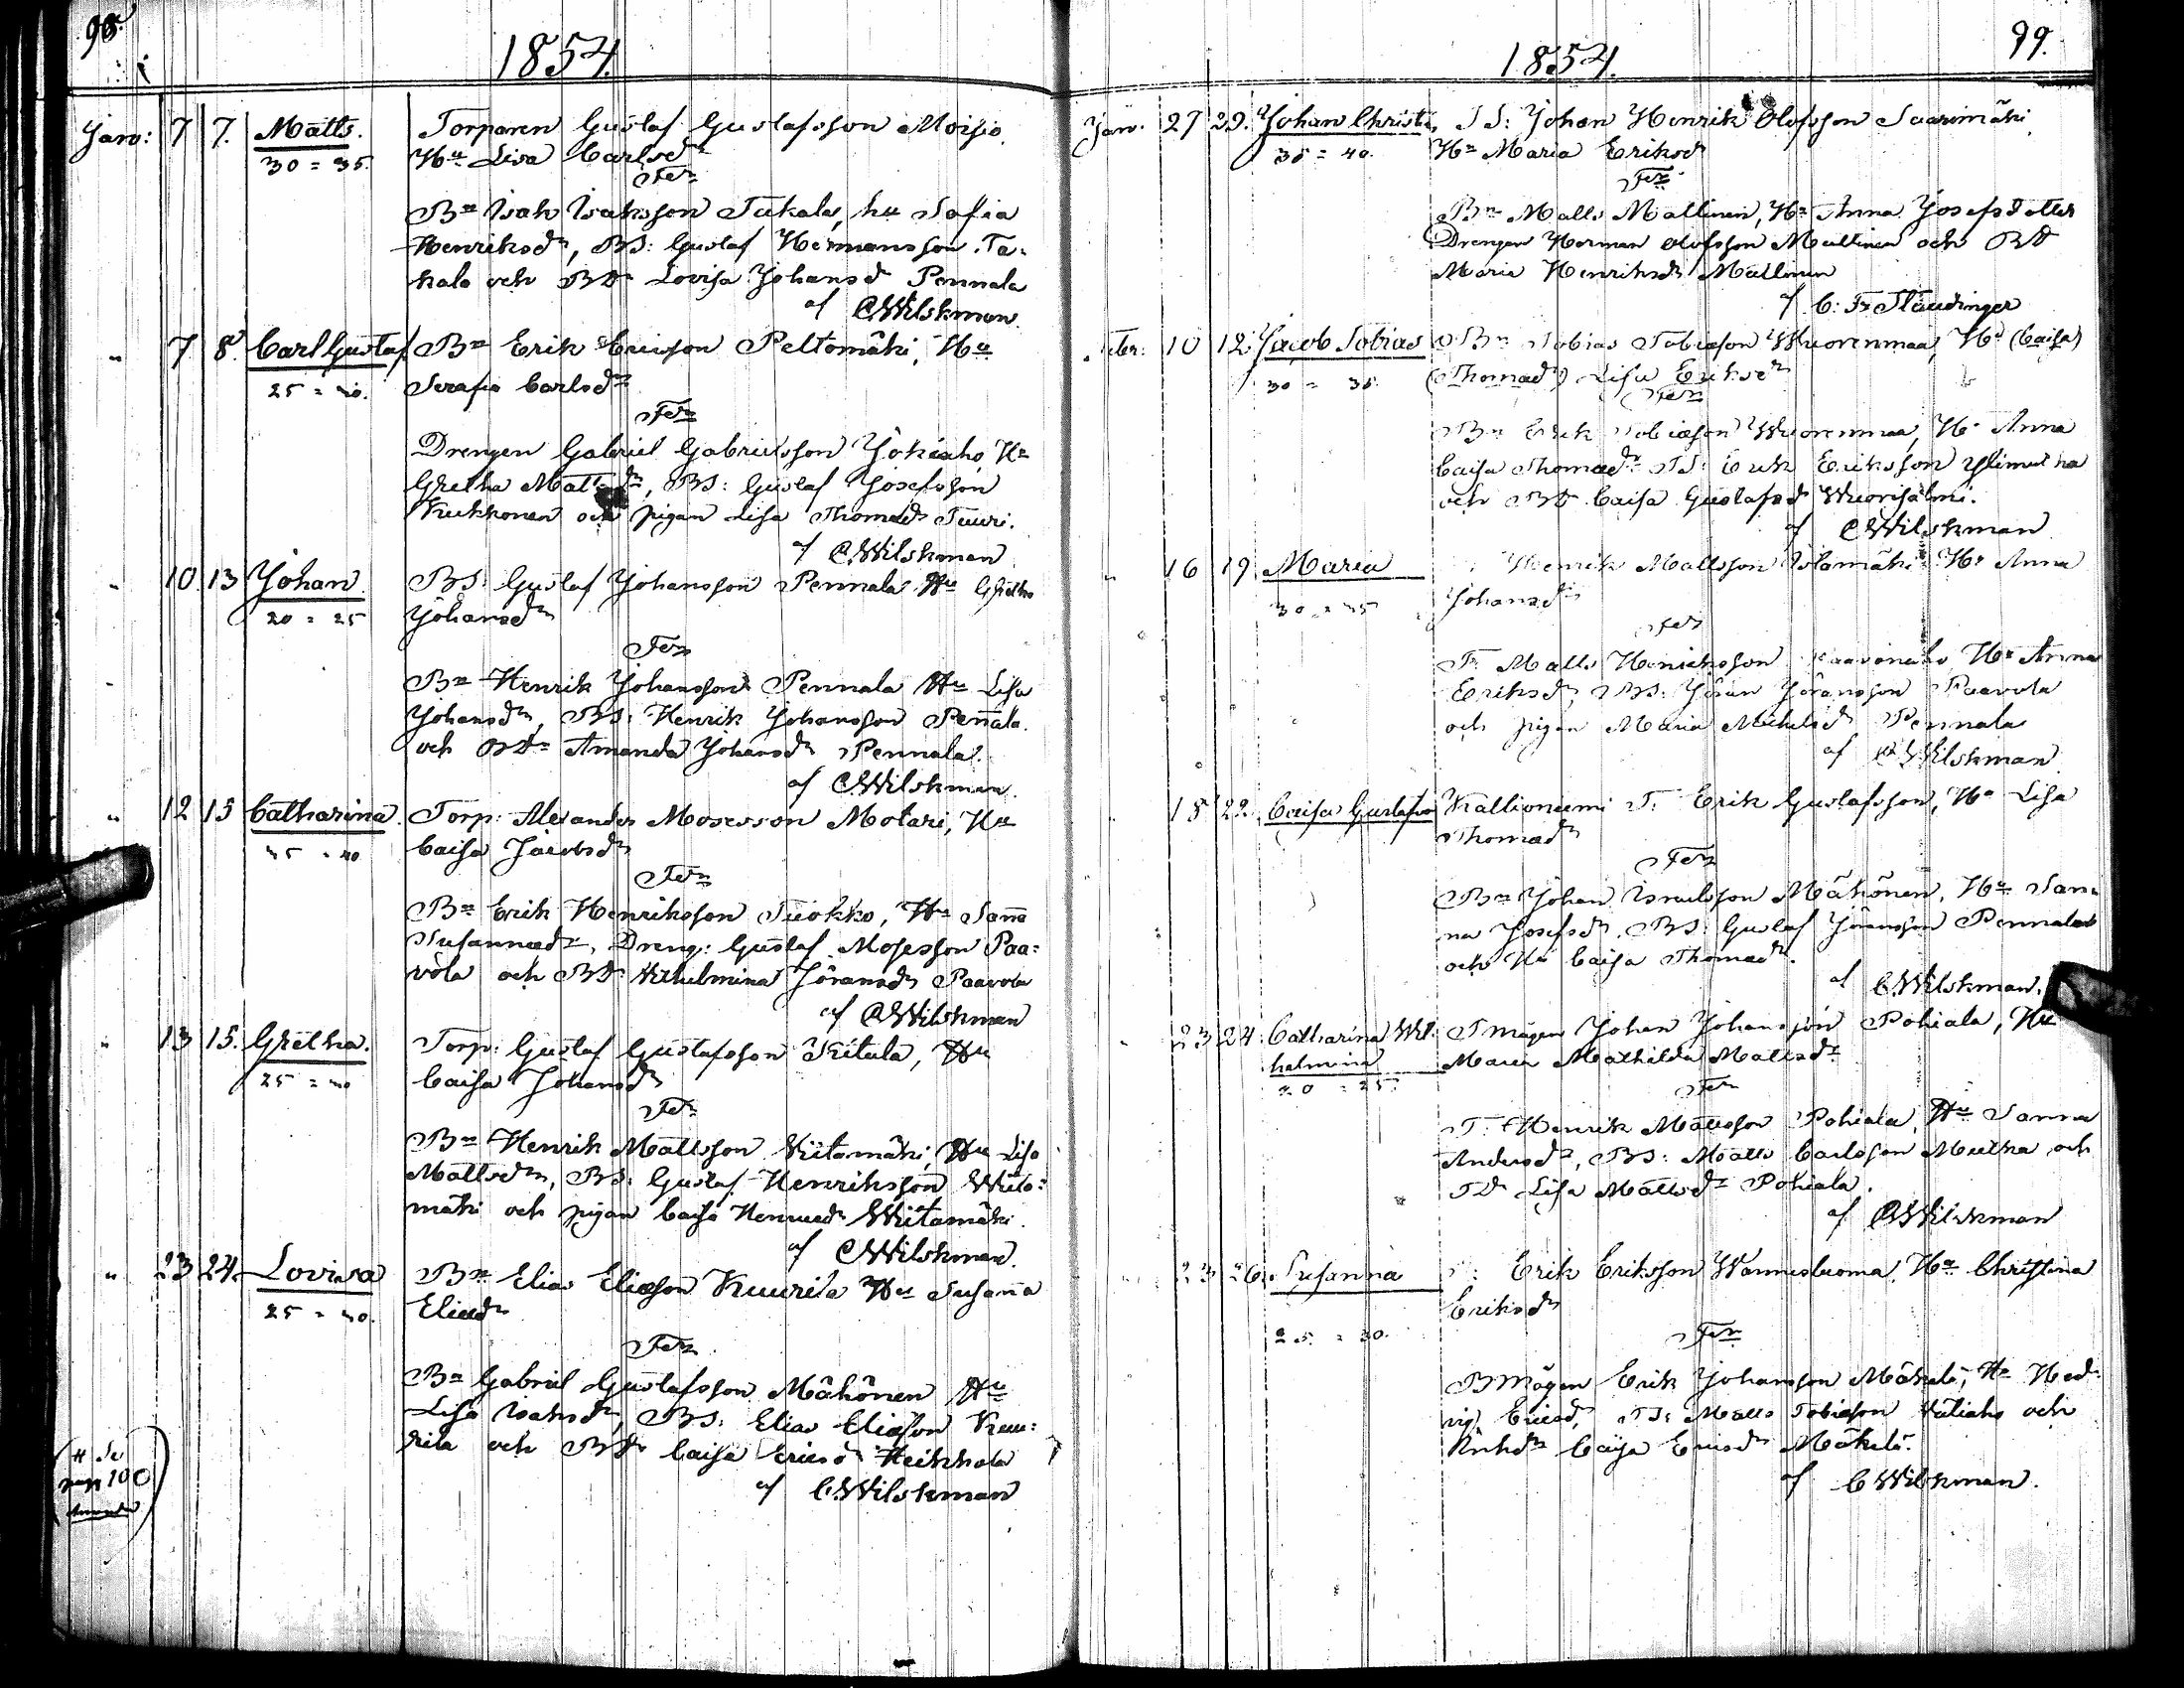 98.
1854.
Janv: 7 7. Matts. Torparen Gustaf Gustafsson Moisio
30 = 35. Hu Lisa Carlsdr
Fr
Bn Isak Isaksson Takala, hu Sofia
Henriksdr, BS: Gustaf Hermansson Ta-
kala och BDr Lovisa Johansd Pennala
af CWilskman.
" 7 8. Carl Gustaf Bn Erik Ericsson Peltomäki, Hu
25 = 30. Serafia Carlsdr
Fr
Drengen Gabriel Gabrielsson Jokiaho Hu
Gretha Mattsdr, BS: Gustaf Josefsson
Kukkonen och pigan Lisa Thomasdr Tuuri.
af CWilskman
" 10. 13 Johan BS: Gustaf Johansson Pennala Hu Gretha
20 = 25 Johansdr
Fr
Bn Henrik Johansson Pennala Hu Lisa
Johansdr, BS: Henrik Johansson Pennala.
och BDr Amanda Johansdr Pennala.
af CWilskman.
" 12 15 Catharina. Torp: Alexander Mosesson Motari, Hu
35 = 40 Caisa Jacobsdr
Fr
Bn Erik Henriksson Tuokko, Hu Sanna
Susannædr, Dreng: Gustaf Mosesson Paa-
vola och BDr Wilhelmina Jöransdr Paavola
af CWilskman
" 13 15. Gretha. Torp: Gustaf Gustafsson Kitula, Hu
25 = 30 Caisa Johansdr
Fr
Bn Henrik Mattsson Wiitamäki, Hu Lisa
Mattsdr, BS: Gustaf Henriksson Wiita-
mäki och pigan Caisa Henricsdr Wiitamäki.
af CWilskman.
" 23 24. Lovisa Bn Elias Eliasson Kuurila Hu Susanna
25 = 30. Eliasdr
Fr
Bn Gabriel Gustafsson Mähönen Hu
Lisa Isaksdr, BS: Elias Eliasson Kuu-
rila och BDr Caisa Ericsdr Heikkala
af CWilskman
(# Se
pag 100
Amanda)
1854.
99.
Janv. 27 29. Johan Christi. TS: Johan Henrik Olofsson Saarimäki
35 = 40. Hu Maria Eriksdr
Fr
Bn Matts Mattinen, Hu Anna Josefsdotter
Drengen Herman Olofsson Mattinen och BD
Maria Henriksdr Mattinen
af C: Fr Staudinger
Febr: 10 12. Jacob Tobias Bn Tobias Tobiasson Wuorenmaa, Hu (Caisa)
30 = 35. (Thomadr) Lisa Eriksdr
Fr
Bn Erik Tobiasson Wuorenmaa, Hu Anna
Caisa Thomædr TS: Erik Eriksson Ylimutka
och BD Caisa Gustafsd Wuorisalmi.
af CWilskman
" 16 19 Maria Henrik Mattsson Isotamäki Hu Anna
30 = 35 Johansdr
Fr
T: Matts Henriksson Hu Anna
Eriksdr, BS: Jöran Jöransson Paavola
och pigan Maria Michelsdr Pennala
af CWilskman
18 22. Caisa Gustafva Kallioniemi T: Erik Gustafsson, Hu Lisa
Thomædr
Fr
Bn Johan Israelsson Mähönen, Hu San-
na Josefsdr. BS: Gustaf Jöransson Pennala
och Hu Caisa Thomædr.
af CWilskman.
23 24. Catharina Wil- T mågen Johan Johansson Pohjala, Hu
helmina Maria Mathilda Mattsdr
20 = 25. Fr
T: Henrik Mattsson Pohiala, Hu Sanna
Andersdr, BS: Matts Carlsson Mutka och
TD Lisa Mattsdr Pohiala.
af CWilskman
23 26. Susanna T: Erik Eriksson Wannesluoma Hu Christina
Eriksdr
25. = 30. Fr
B mågen Erik Johansson Mäkelä, Hu Hed-
vig Ericsd, TS: Matts Tobiasson och
Caisa Ericsdr Mäkelä.
af CWilskman.